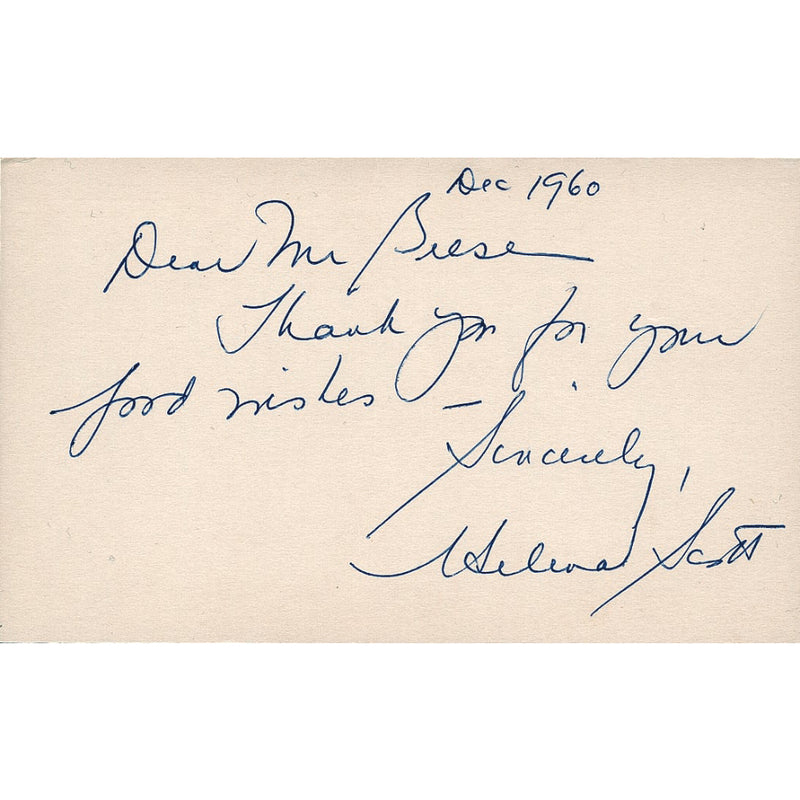 Dec 1960
Dear Mr Beese
Thank you for your
good wishes –
Sincerely,
Helena Scott